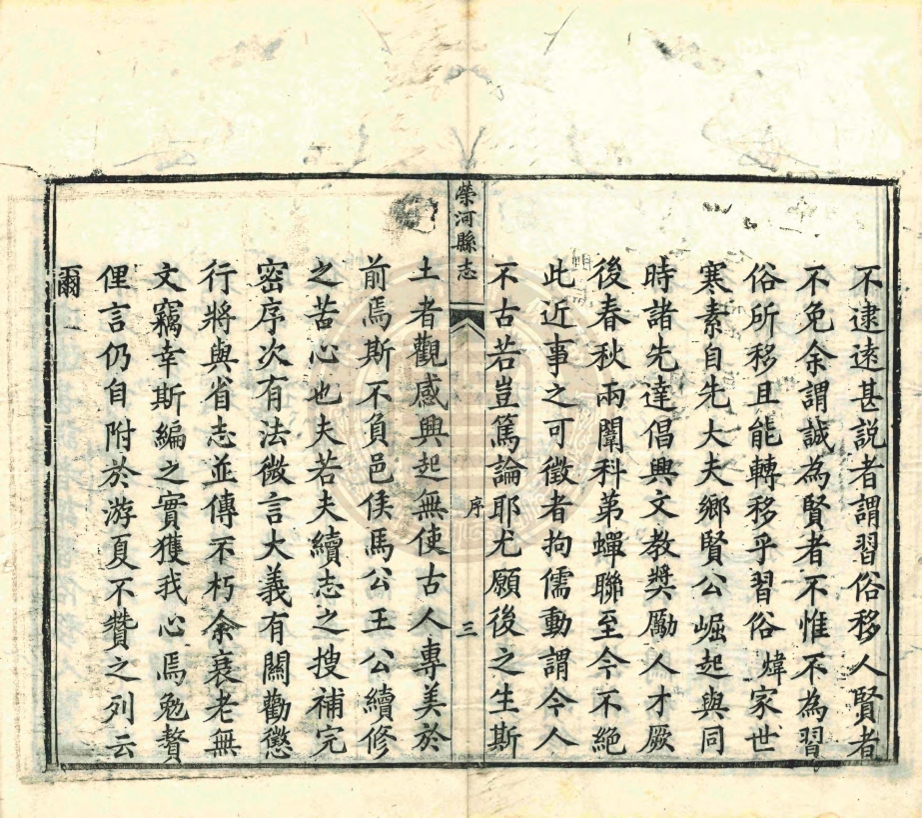 不逮遠甚説者謂習俗移人賢者
不免余謂誠為賢者不惟不為習
俗所移且能轉移乎習俗煒家世
寒素自先大夫鄉賢公崛起與同
時諸先達倡興文教奬勵人才厥
後春秋兩闈科第蟬聯至今不絕
此近事之可徵者拘儒動謂今人
不古若豈篤論耶尤願後之生斯
榮河縣志
序
三
土者觀感興起無使古人專美於
前焉斯不負邑侯馬公王公續修
之苦心也夫若夫續志之搜補完
密序次有法微言大義有關勸懲
行將與省志並傳不朽余衰老無
文竊幸斯編之實獲我心焉勉贅
俚言仍自附於游夏不贊之列云
爾